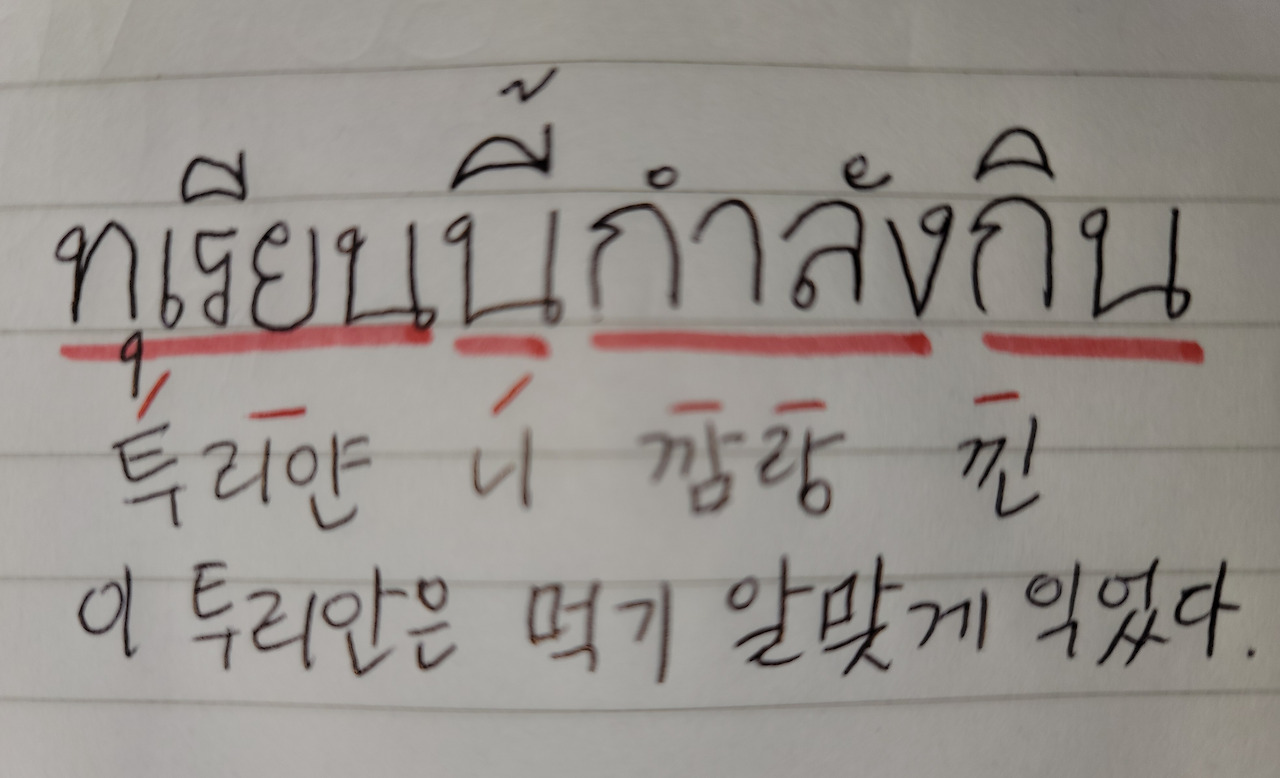 ทุเรียนนี้กำลังกิน
투리얀 니 깜랑 낀
이 투리안은 먹기 알맞게 익었다.